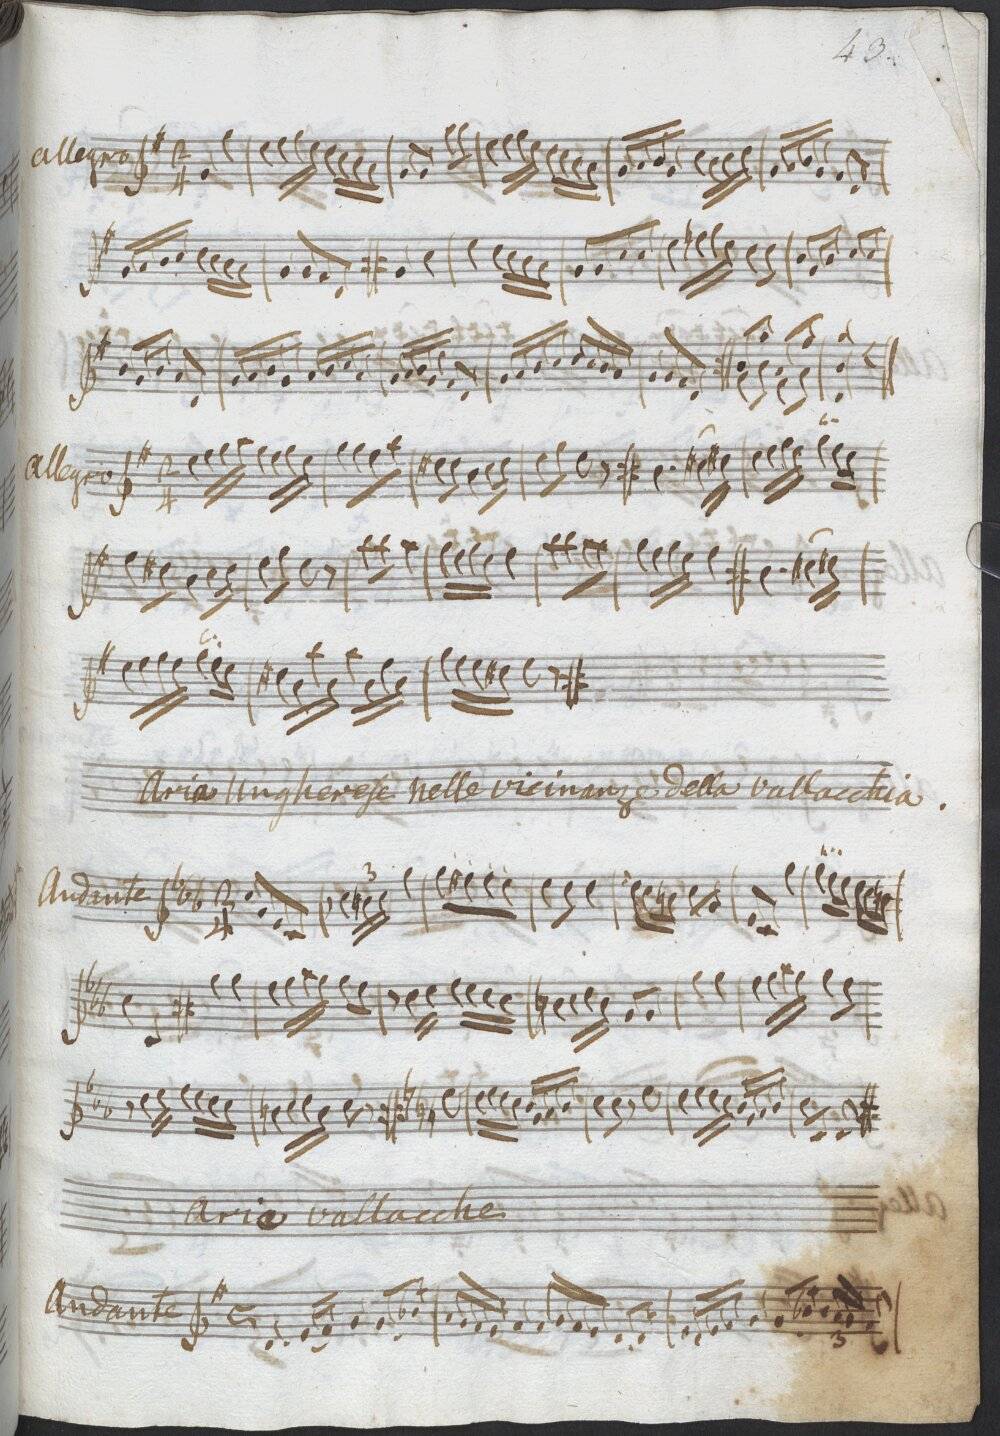 43.
allegro
allegro
Aria Ungherese nelle vicinanze della vallacchia.
Andante 3
Aria vallacche
Andante
3